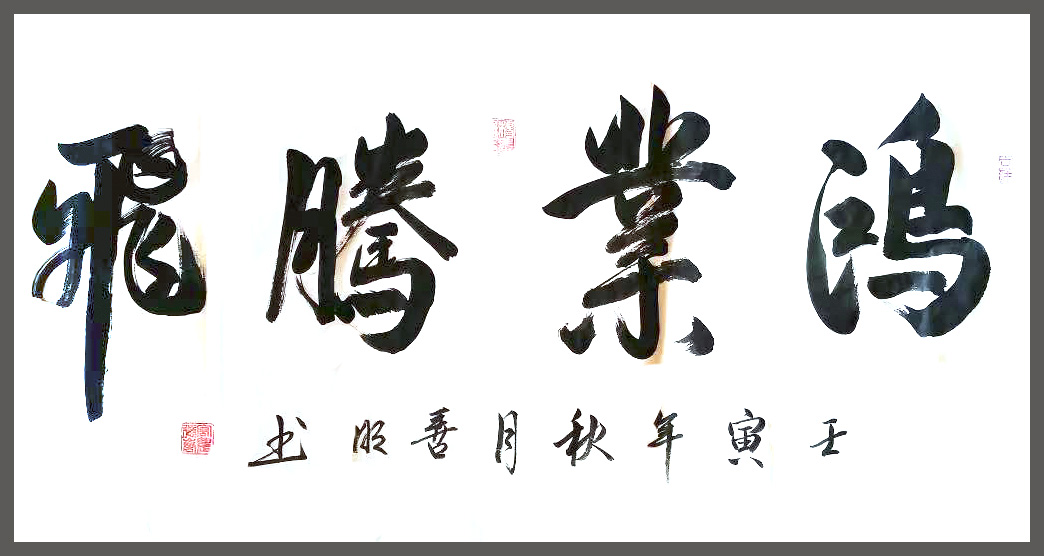 鴻業騰飛
壬寅年秋月善明书